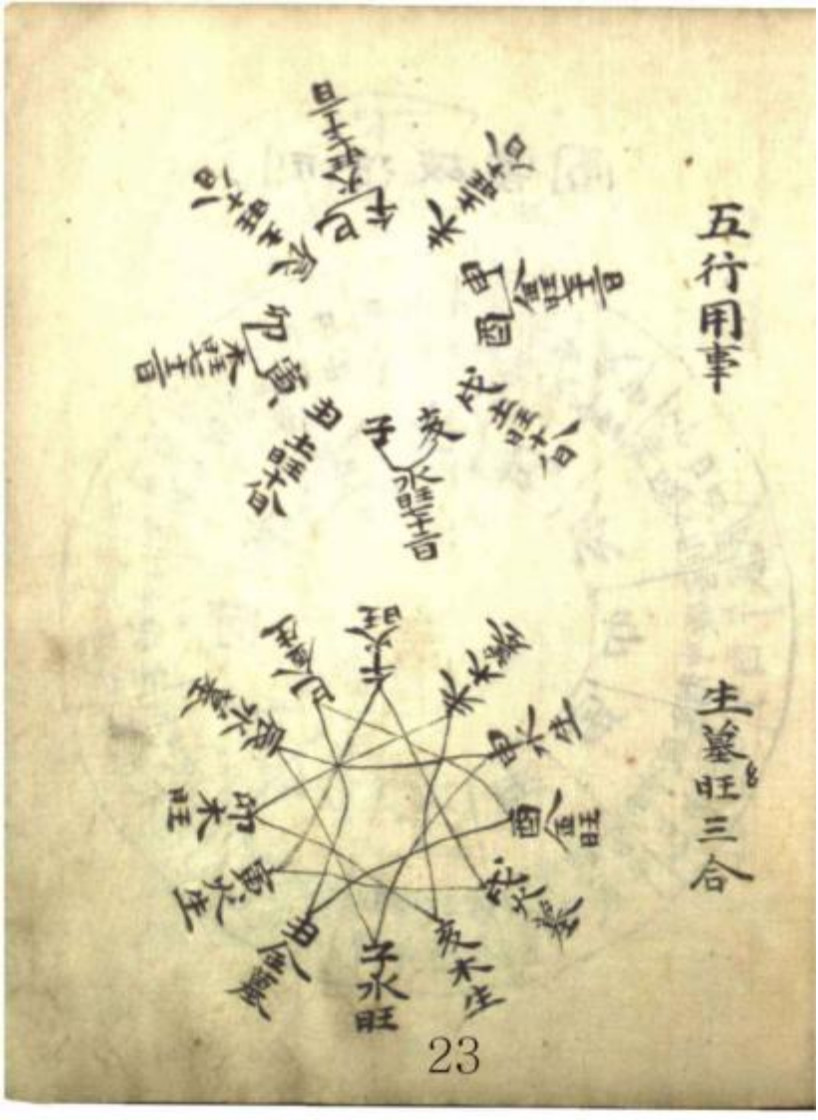 五行用事
子亥
水旺七十二日
丑
土旺十八日
寅卯
木旺七十二日
辰
土旺十八日
巳午
火旺七十二日
未
土旺十八日
申酉
金旺七十二日
戌
土旺十八日
生墓旺三合
子水旺
丑金墓
寅火生
卯木旺
辰水墓
巳金生
午火旺
未木墓
申水生
酉金旺
戌火墓
亥木生
23